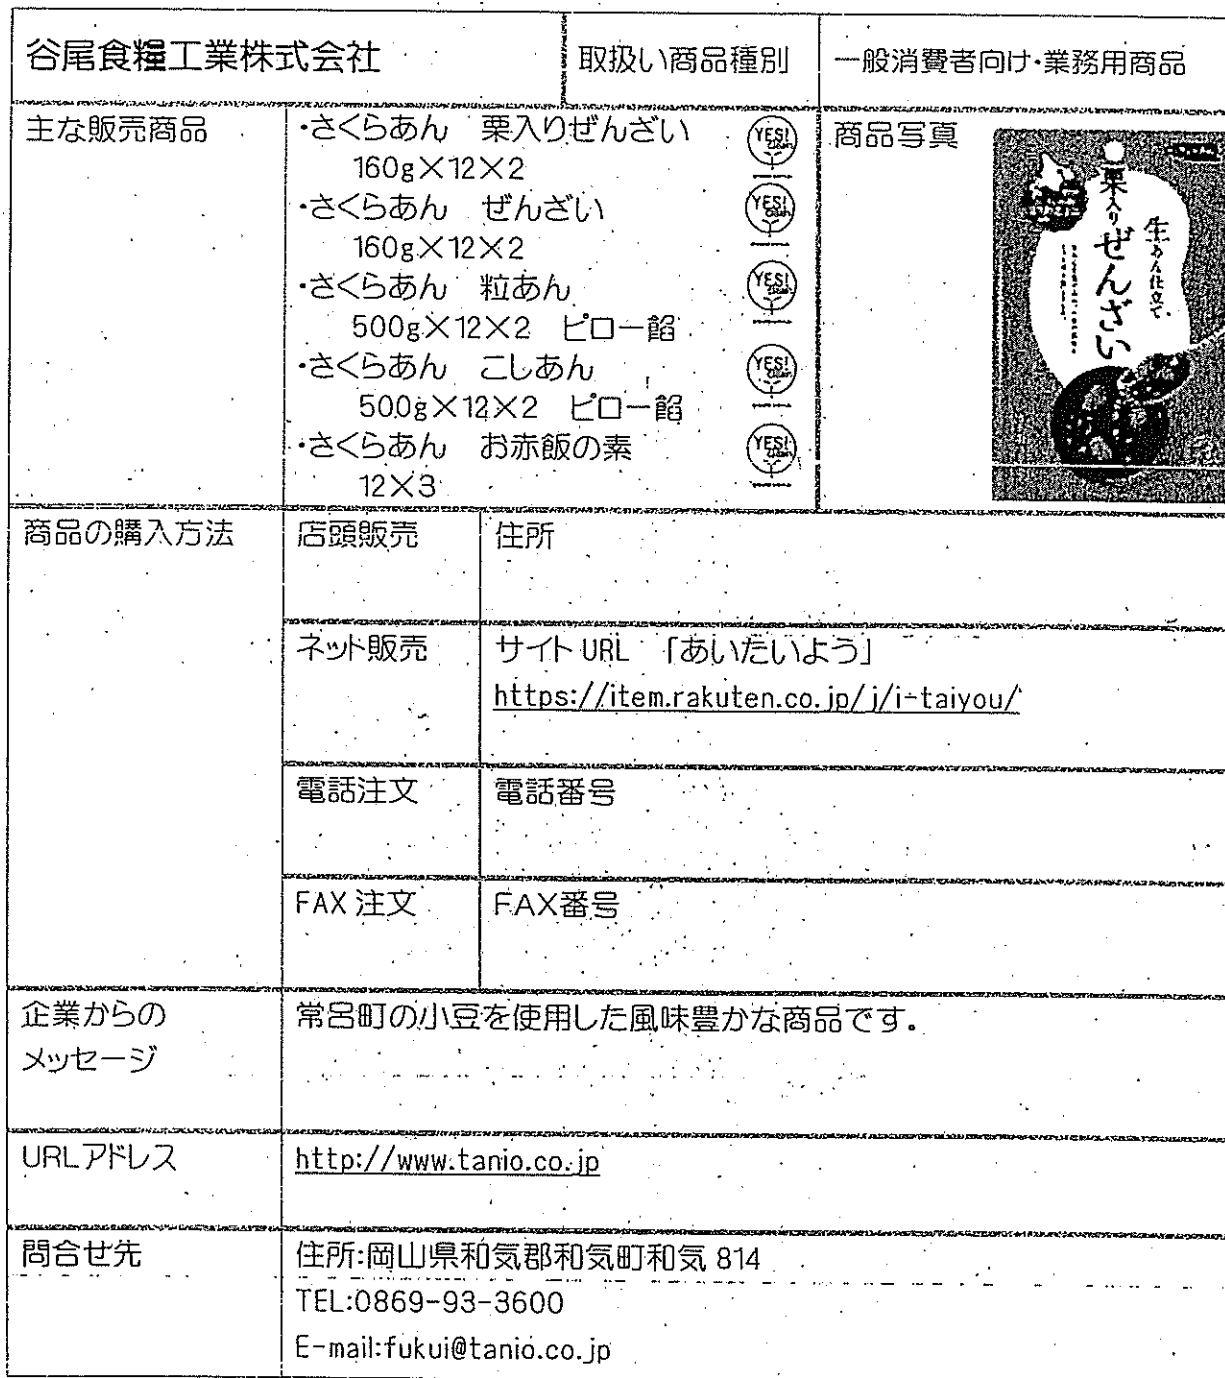 谷尾食糧工業株式会社
取扱い商品種別
一般消費者向け・業務用商品
主な販売商品
・さくらあん 栗入りぜんざい
160g×12×2
YES!
・さくらあん ぜんざい
160g×12×2
YES!
・さくらあん 粒あん
500g×12×2 ピロー餡
YES!
・さくらあん こしあん
500g×12×2 ピロー餡
YES!
・さくらあん お赤飯の素
12×3
YES!
商品写真
生あん仕立て、
栗入りぜんざい
商品の購入方法
店頭販売
住所
ネット販売
サイト URL 「あいたいよう」
https://item.rakuten.co.jp/j/i-taiyou/
電話注文
電話番号
FAX 注文
FAX番号
企業からの
メッセージ
常呂町の小豆を使用した風味豊かな商品です。
URLアドレス
http://www.tanio.co.jp
問合せ先
住所:岡山県和気郡和気町和気 814
TEL:0869-93-3600
E-mail:fukui@tanio.co.jp